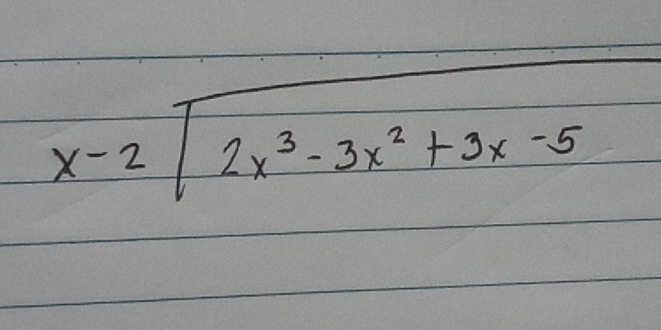 x-2 ⟌ 2x³ - 3x² + 3x - 5